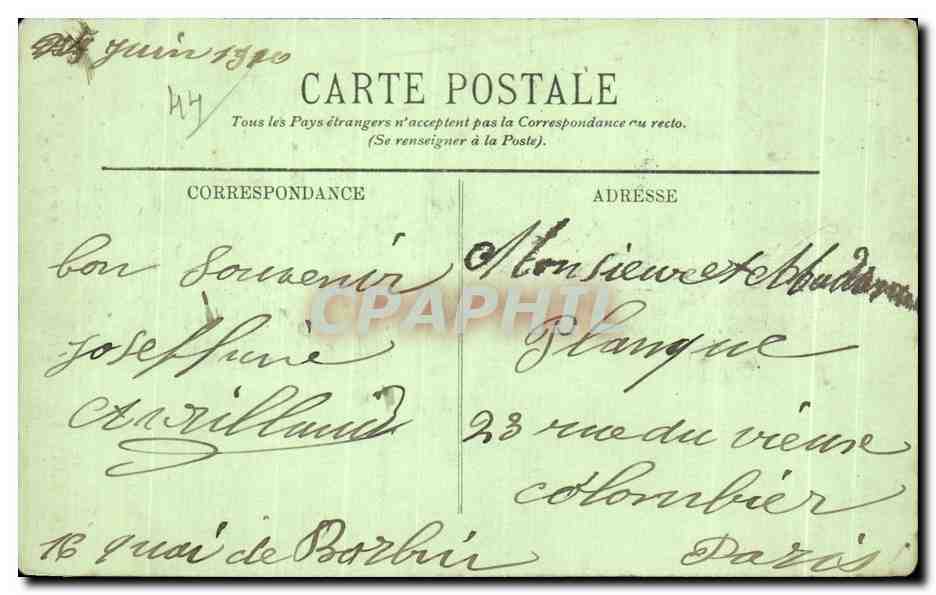 juin 1910
44
CARTE POSTALE
Tous les Pays étrangers n'acceptent pas la Correspondance au recto.
(Se renseigner à la Poste).
CORRESPONDANCE
bon Souvenir
Joseffine
Avrillaud
16 quai de
ADRESSE
Monsieur et Madame
Planque
23 rue du vieux
Colombier
Paris
CPAPHIL